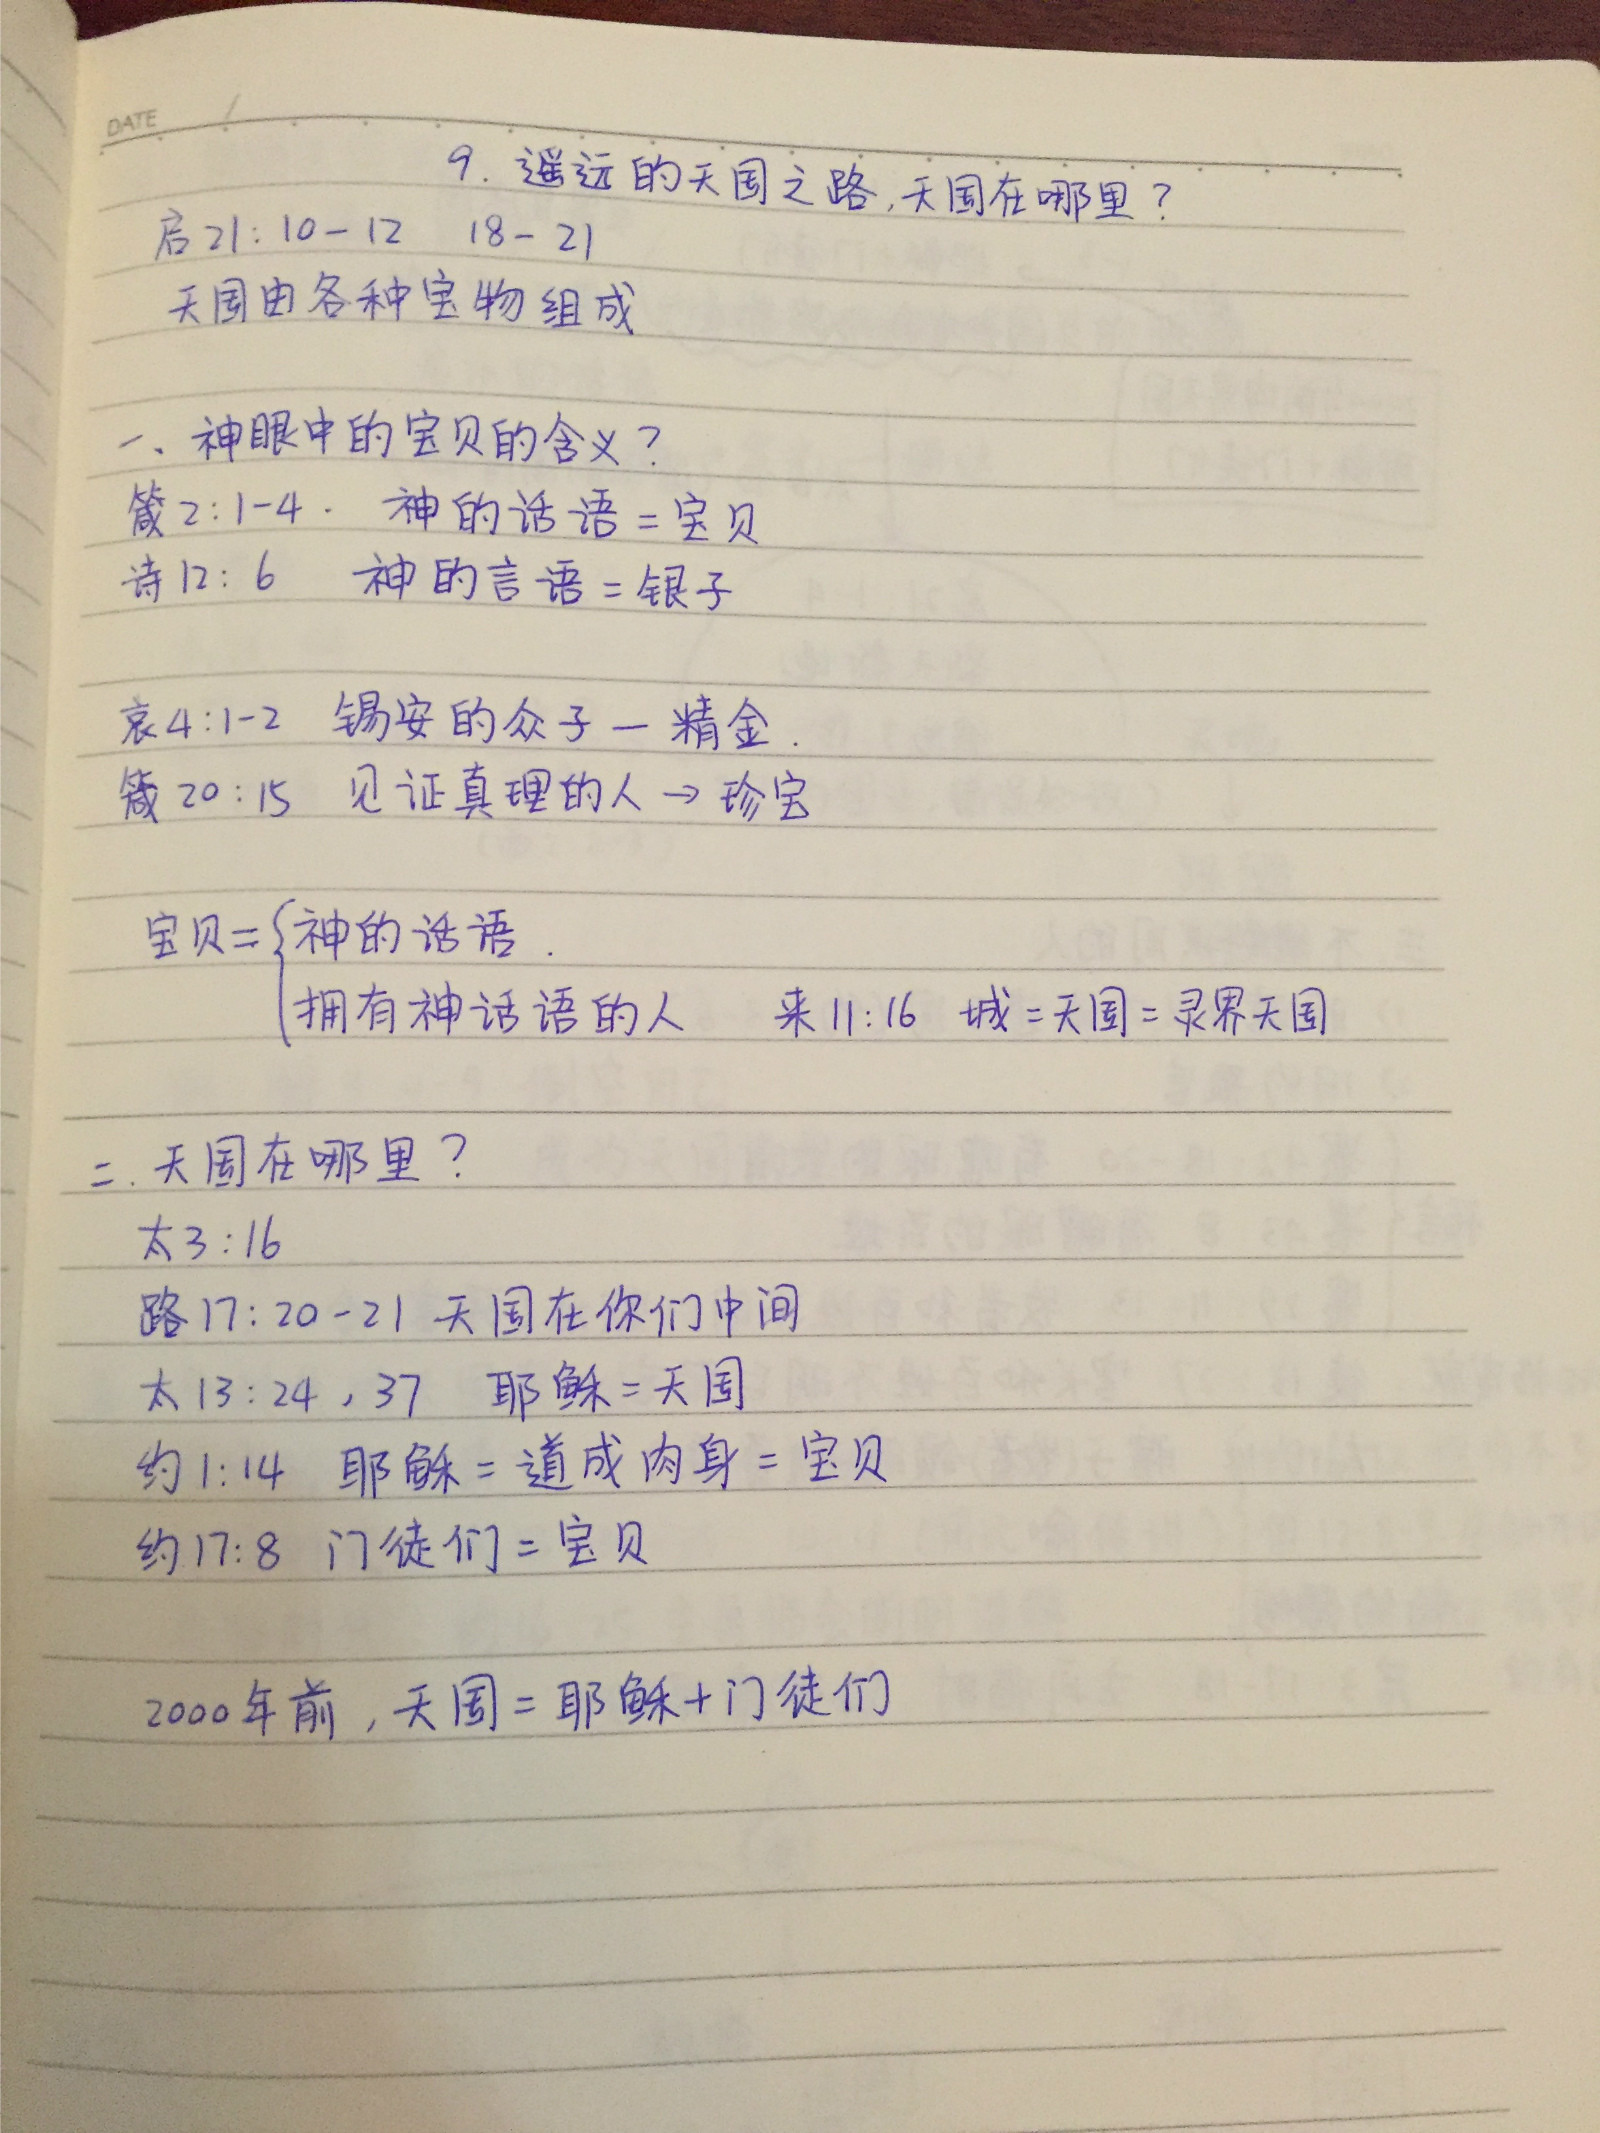 DATE /
9. 遥远的天国之路,天国在哪里?
启21:10-12 18-21
天国由各种宝物组成
一、神眼中的宝贝的含义?
箴2:1-4. 神的话语=宝贝
诗12:6 神的言语=银子
哀4:1-2 锡安的众子—精金.
箴20:15 见证真理的人→珍宝
宝贝={神的话语.
拥有神话语的人 来11:16 城=天国=灵界天国
二.天国在哪里?
太3:16
路17:20-21 天国在你们中间
太13:24,37 耶稣=天国
约1:14 耶稣=道成肉身=宝贝
约17:8 门徒们=宝贝
2000年前,天国=耶稣+门徒们